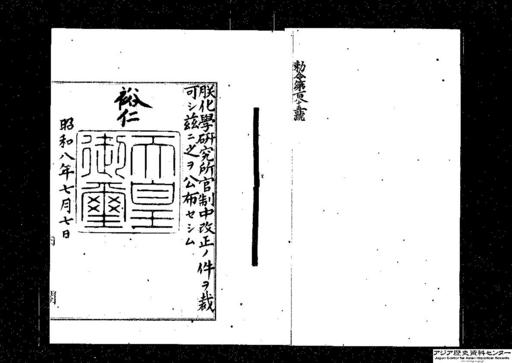 朕化學研究所官制中改正ノ件ヲ裁
可シ茲ニ之ヲ公布セシム
裕仁
天皇御璽
昭和八年七月七日
内閣
アジア歴史資料センター
Japan Center for Asian Historical Records